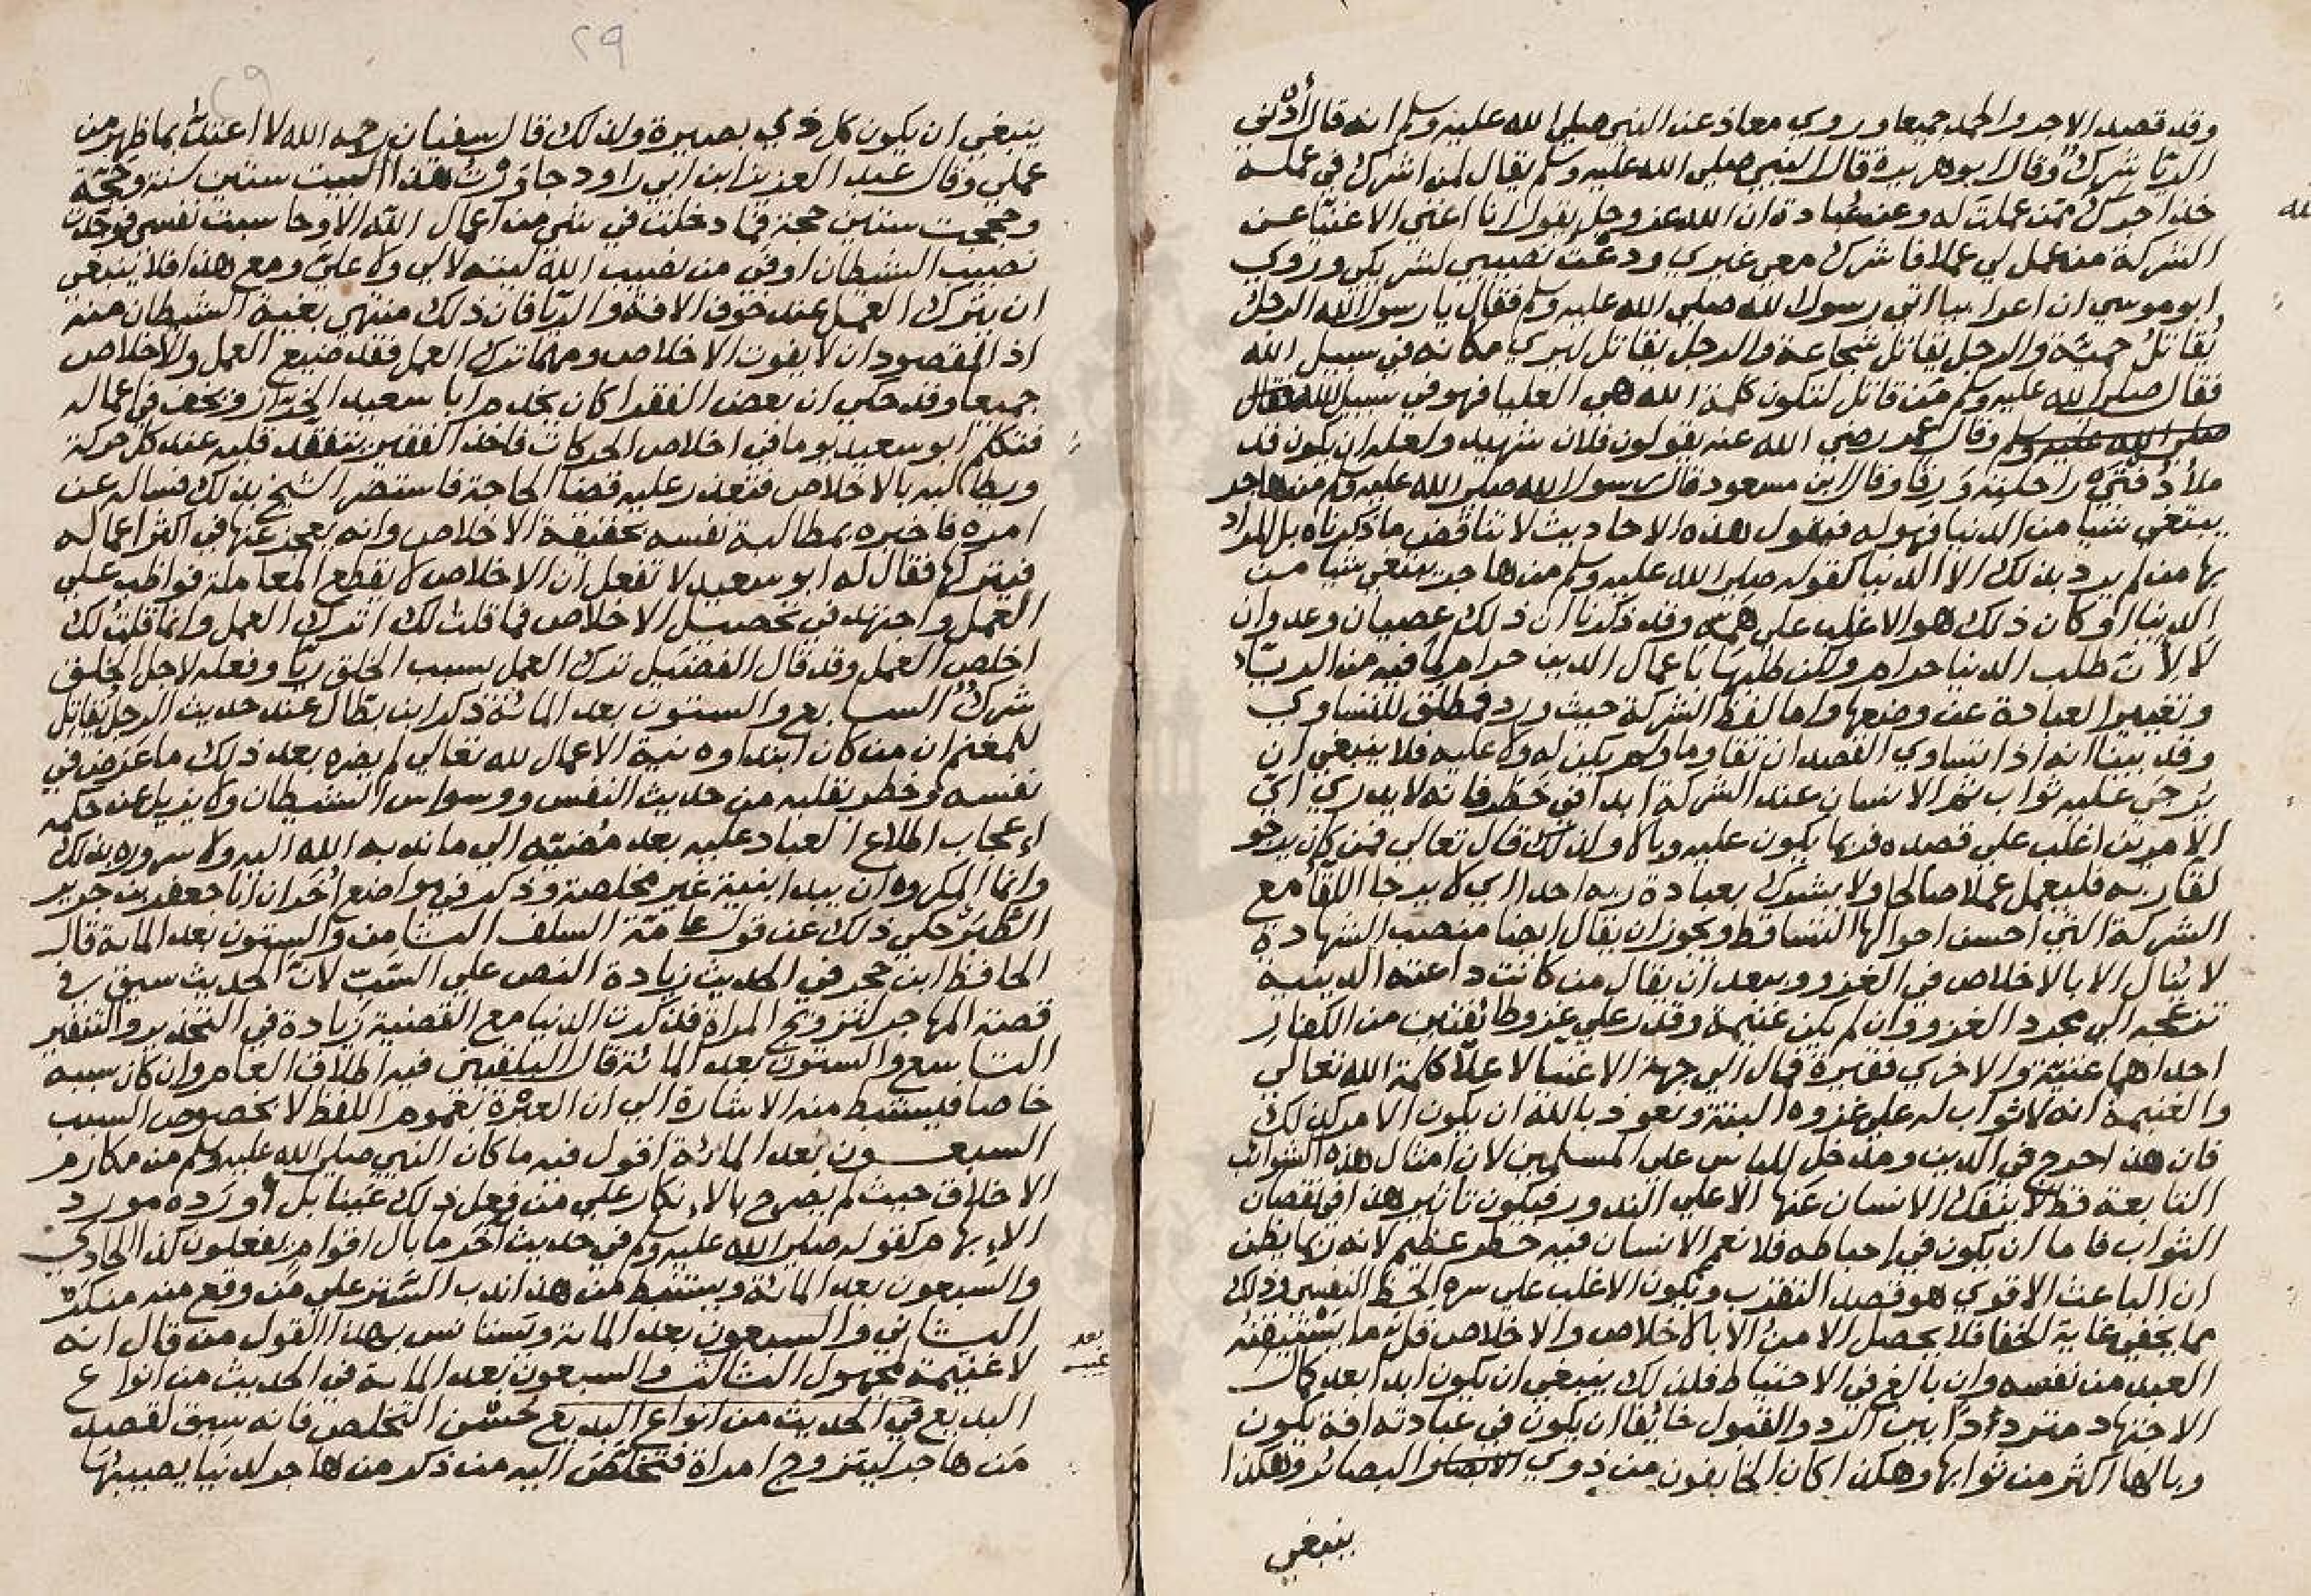 وقد قصد الاجر والحمد جميعا وروي معاذ عن النبي صلي الله عليه وسلم انه قال أدني
الريا شرك وقال ابو هريرة قال النبي صلي الله عليه وسلم يقال لمن اشرك في عمله
خذ اجرك ممن عملت له وعن عبادة ان الله عز وجل يقول انا اغني الاغنيا عن
الشركة من عمل لي عملا فاشرك معي غيري ودعت نصيبي لشريكي وروي
ابو موسي ان اعرابيا اتي رسول الله صلي الله عليه وسلم فقال يا رسول الله الرجل
يقاتل حمية والرجل يقاتل شجاعة والرجل يقاتل ليري مكانه في سبيل الله
فقال صلي الله عليه وسلم من قاتل لتكون كلمة الله هي العليا فهو في سبيل الله
صلي الله عليه وسلم وقال عمر رضي الله عنه يقولون فلان شهيد ولعله ان يكون قد
ملأ دفتي راحلته ورقا وقال ابن مسعود قال رسول الله صلي الله عليه وسلم من هاجر
يبتغي شيا من الدنيا فهو له فيقول هذه الاحاديث لا تناقض ما ذكرناه بل المراد
بها من لم يرد بذلك الا الدنيا كقوله صلي الله عليه وسلم من هاجر يبتغي شيا من
الدنيا او كان ذلك هو الاغلب علي همه وقد ذكرنا ان ذلك عصيان وعدوان
لا لأن طلب الدنيا حرام ولكن طلبها باعمال الدين حرام لما فيه من الرياء
وتغيير العبادة عن وضعها واما لفظ الشركة حيث ورد فمطلق للتساوي
وقد بينا انه اذا تساوي القصدان تقاوما ولم يكن له ولا عليه فلا ينبغي ان
يرجي عليه ثواب ثم الانسان عند الشركة ابدا في خطر فانه لا يدري اي
الامرين اغلب علي قصده فربما يكون عليه وبالا ولذلك قال تعالي فمن كان يرجو
لقا ربه فليعمل عملا صالحا ولا يشرك بعبادة ربه احدا اي لا يرجا اللقا مع
الشركة التي احسن احوالها التساقط ويجوز ان يقال ايضا منصب الشهادة
لا ينال الا بالاخلاص في الغزو ويبعد ان يقال من كانت داعيته الدينية
تزعجه الي مجرد الغزو وان لم يكن غنيمة وقدر علي غزو طائفتين من الكفار
احداهما غنية والاخري فقيرة فمال الي جهة الاغنيا لاعلا كلمة الله تعالي
والغنيمة انه لا ثواب له علي غزوه البتة ونعوذ بالله ان يكون الامر كذلك
فان هذا حرج في الدين ومدخل للياس علي المسلمين لان امثال هذه الشوائب
التابعة قط لا ينفك الانسان عنها الا علي الندور فيكون تاثير هذا في نقصان
الثواب فاما ان يكون في احباطه فلا نعم الانسان فيه خطر عظيم لانه ربما يظن
ان الباعث الاقوي هو قصد التقرب ويكون الاغلب علي سره الحظ النفسي وذلك
مما يخفي غاية الخفا فلا يحصل الامن الا بالاخلاص والاخلاص قل ما يستيقنه
العبد من نفسه وان بالغ في الاحتياط فلذلك ينبغي ان يكون ابدا بعد كمال
الاجتهاد مترددا بين الرد والقبول خايفا ان يكون في عبادته افة يكون
وبالها اكثر من ثوابها وهكذا كان الخايفون من ذوي البصائر وهكذا
ينبغي
٢٩
ينبغي ان يكون كل ذي بصيرة ولذلك قال سفيان رحمه الله لا اعتد بما ظهر من
عملي وقال عبد العزيز ابن ابي راود جاورت هذا البيت ستين سنة
وحججت ستين حجة فما دخلت في شي من اعمال الله الا وحاسبت نفسي فوجدت
نصيب الشيطان اوفي من نصيب الله ليته لا لي ولا علي ومع هذا فلا ينبغي
ان يترك العمل عند خوف الافة والريا فان ذلك منتهي بغية الشيطان منه
اذ المقصود ان لا يفوت الاخلاص ومهما ترك العمل فقد ضيع العمل والاخلاص
جميعا وقد حكي ان بعض الفقرا كان يخدم ابا سعيد الخراز ويخف في اعماله
فتكلم ابو سعيد يوما في اخلاص الحركات فاخذ الفقير يتفقد قلبه عند كل حركة
ويطالبه بالاخلاص فتعذر عليه قضا الحاجة فاستضر الشيخ بذلك فساله عن
امره فاخبره بمطالبة نفسه بحقيقة الاخلاص وانه يعجز عنها في اكثر اعماله
فيتركها فقال له ابو سعيد لا تفعل ان الاخلاص لا يقطع المعاملة فواظب علي
العمل واجتهد في تحصيل الاخلاص فما قلت لك اترك العمل وانما قلت لك
اخلص العمل وقد قال الفضيل ترك العمل بسبب الخلق ريا وفعله لاجل الخلق
شرك السابع والستون بعد المائة ذكر ابن بطال عند حديث الرجل يقاتل
للمغنم ان من كان ابتداوه نية الاعمال لله تعالي لم يضره بعد ذلك ما عرض في
نفسه وخطر بقلبه من حديث النفس ووسواس الشيطان ولا يزيله عن حكمه
اعجاب اطلاع العباد عليه بعد مضيه الي ما ندبه الله اليه ولا سروره بذلك
وانما المكروه ان يبدا بنية غير مخلصة وذكر في مواضع أخر ان ابا جعفر بن جرير
الطبري حكي ذلك عن قول عامة السلف الثامن والستون بعد المائة قال
الحافظ ابن حجر في الحديث زيادة النص علي السبب لان الحديث سيق في
قصة المهاجر لتزويج المراة فذكرت الدنيا مع القصية زيادة في التحذير والتنفير
التاسع والستون بعد المائة قال البلقيني فيه اطلاق العام وان كان سببه
خاصا فيستنبط منه الاشارة الي ان العبرة بعموم اللفظ لا بخصوص السبب
السبعون بعد المائة اقول فيه ما كان النبي صلي الله عليه وسلم من مكارم
الاخلاق حيث لم يصرح بالانكار علي من فعل ذلك عينا بل أورده مورد
الابهام كقوله صلي الله عليه وسلم في حديث آخر ما بال اقوام يفعلون كذا الحادي
والسبعون بعد المائة ويستنبط من هذا ندب الستر علي من وقع منه منكر
الثاني والسبعون بعد المائة ويستانس بهذا القول من قال انه
لا غنيمة لمجهول الثالث والسبعون بعد المائة في الحديث من انواع
البديع في الحديث من انواع البديع حسن التخلص فانه سيق لقصد
من هاجر ليتزوج امراة فتخلص اليه من ذكر من هاجر لدنيا يصيبها